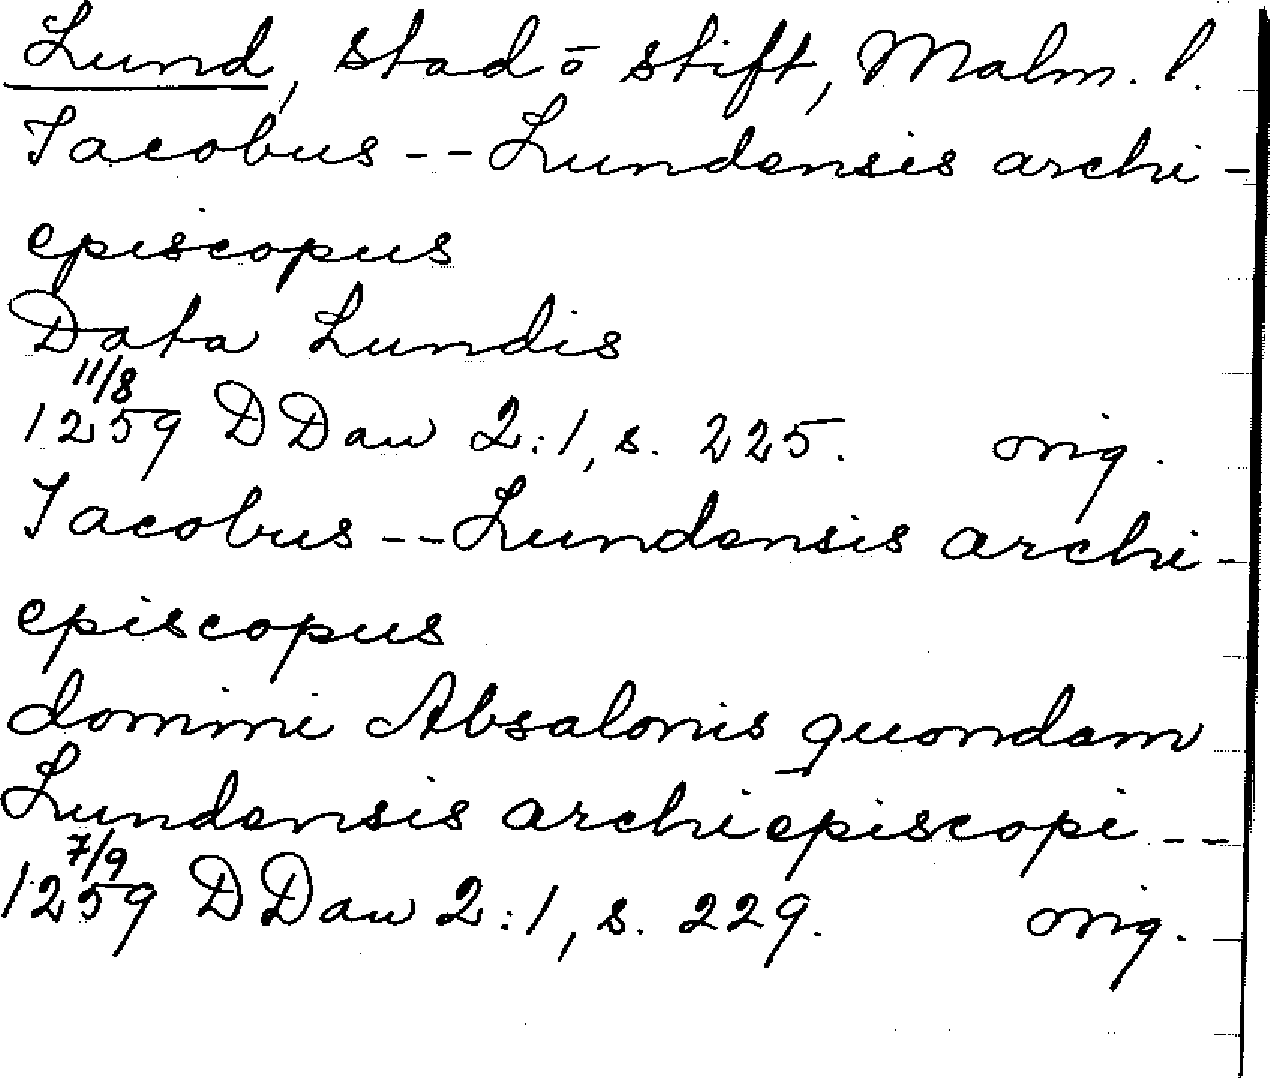 Lund, stad o stift, Malm. l.
Jacobus -- Lundensis archi-
episcopus
Data Lundis
11/8
1259 DDan 2:1, s. 225. orig.
Jacobus -- Lundensis archi-
episcopus
domini Absalonis quondam
Lundensis archiepiscopi --
7/9
1259 DDan 2:1, s. 229. orig.